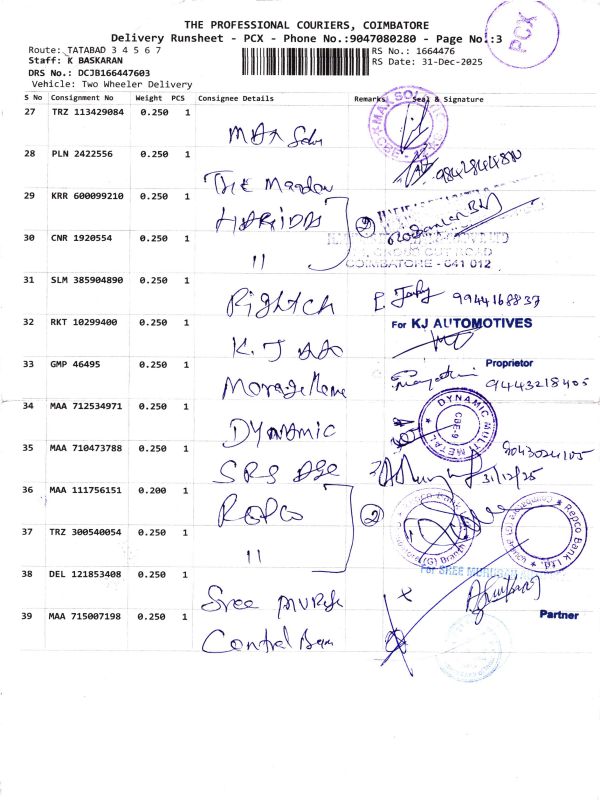 THE PROFESSIONAL COURIERS, COIMBATORE
Delivery Runsheet - PCX - Phone No.:9047080280 - Page No.:3
PCX
Route: TATABAD 3 4 5 6 7
RS No.: 1664476
Staff: K BASKARAN
RS Date: 31-Dec-2025
DRS No.: DCJB166447603
Vehicle: Two Wheeler Delivery
S No Consignment No Weight PCS Consignee Details Remarks Seal & Signature
27 TRZ 113429084 0.250 1
28 PLN 2422556 0.250 1
9842844810
THE
29 KRR 600099210 0.250 1
2
30 CNR 1920554 0.250 1
CROSS CUT ROAD
"
COIMBATORE - 641 012
31 SLM 385904890 0.250 1
9944168837
32 RKT 10299400 0.250 1
For KJ AUTOMOTIVES
K.J
33 GMP 46495 0.250 1
Proprietor
9443218405
34 MAA 712534971 0.250 1
DYNAMIC MULTI METAL
CBE-9
DYNAMIC
35 MAA 710473788 0.250 1
9043024105
31/12/25
SRS
36 MAA 111756151 0.200 1
REPCO
2
Repco Bank Ltd.
37 TRZ 300540054 0.250 1
(G) Branch
"
For SREE
38 DEL 121853408 0.250 1
Sree
39 MAA 715007198 0.250 1
Partner
Central Bank